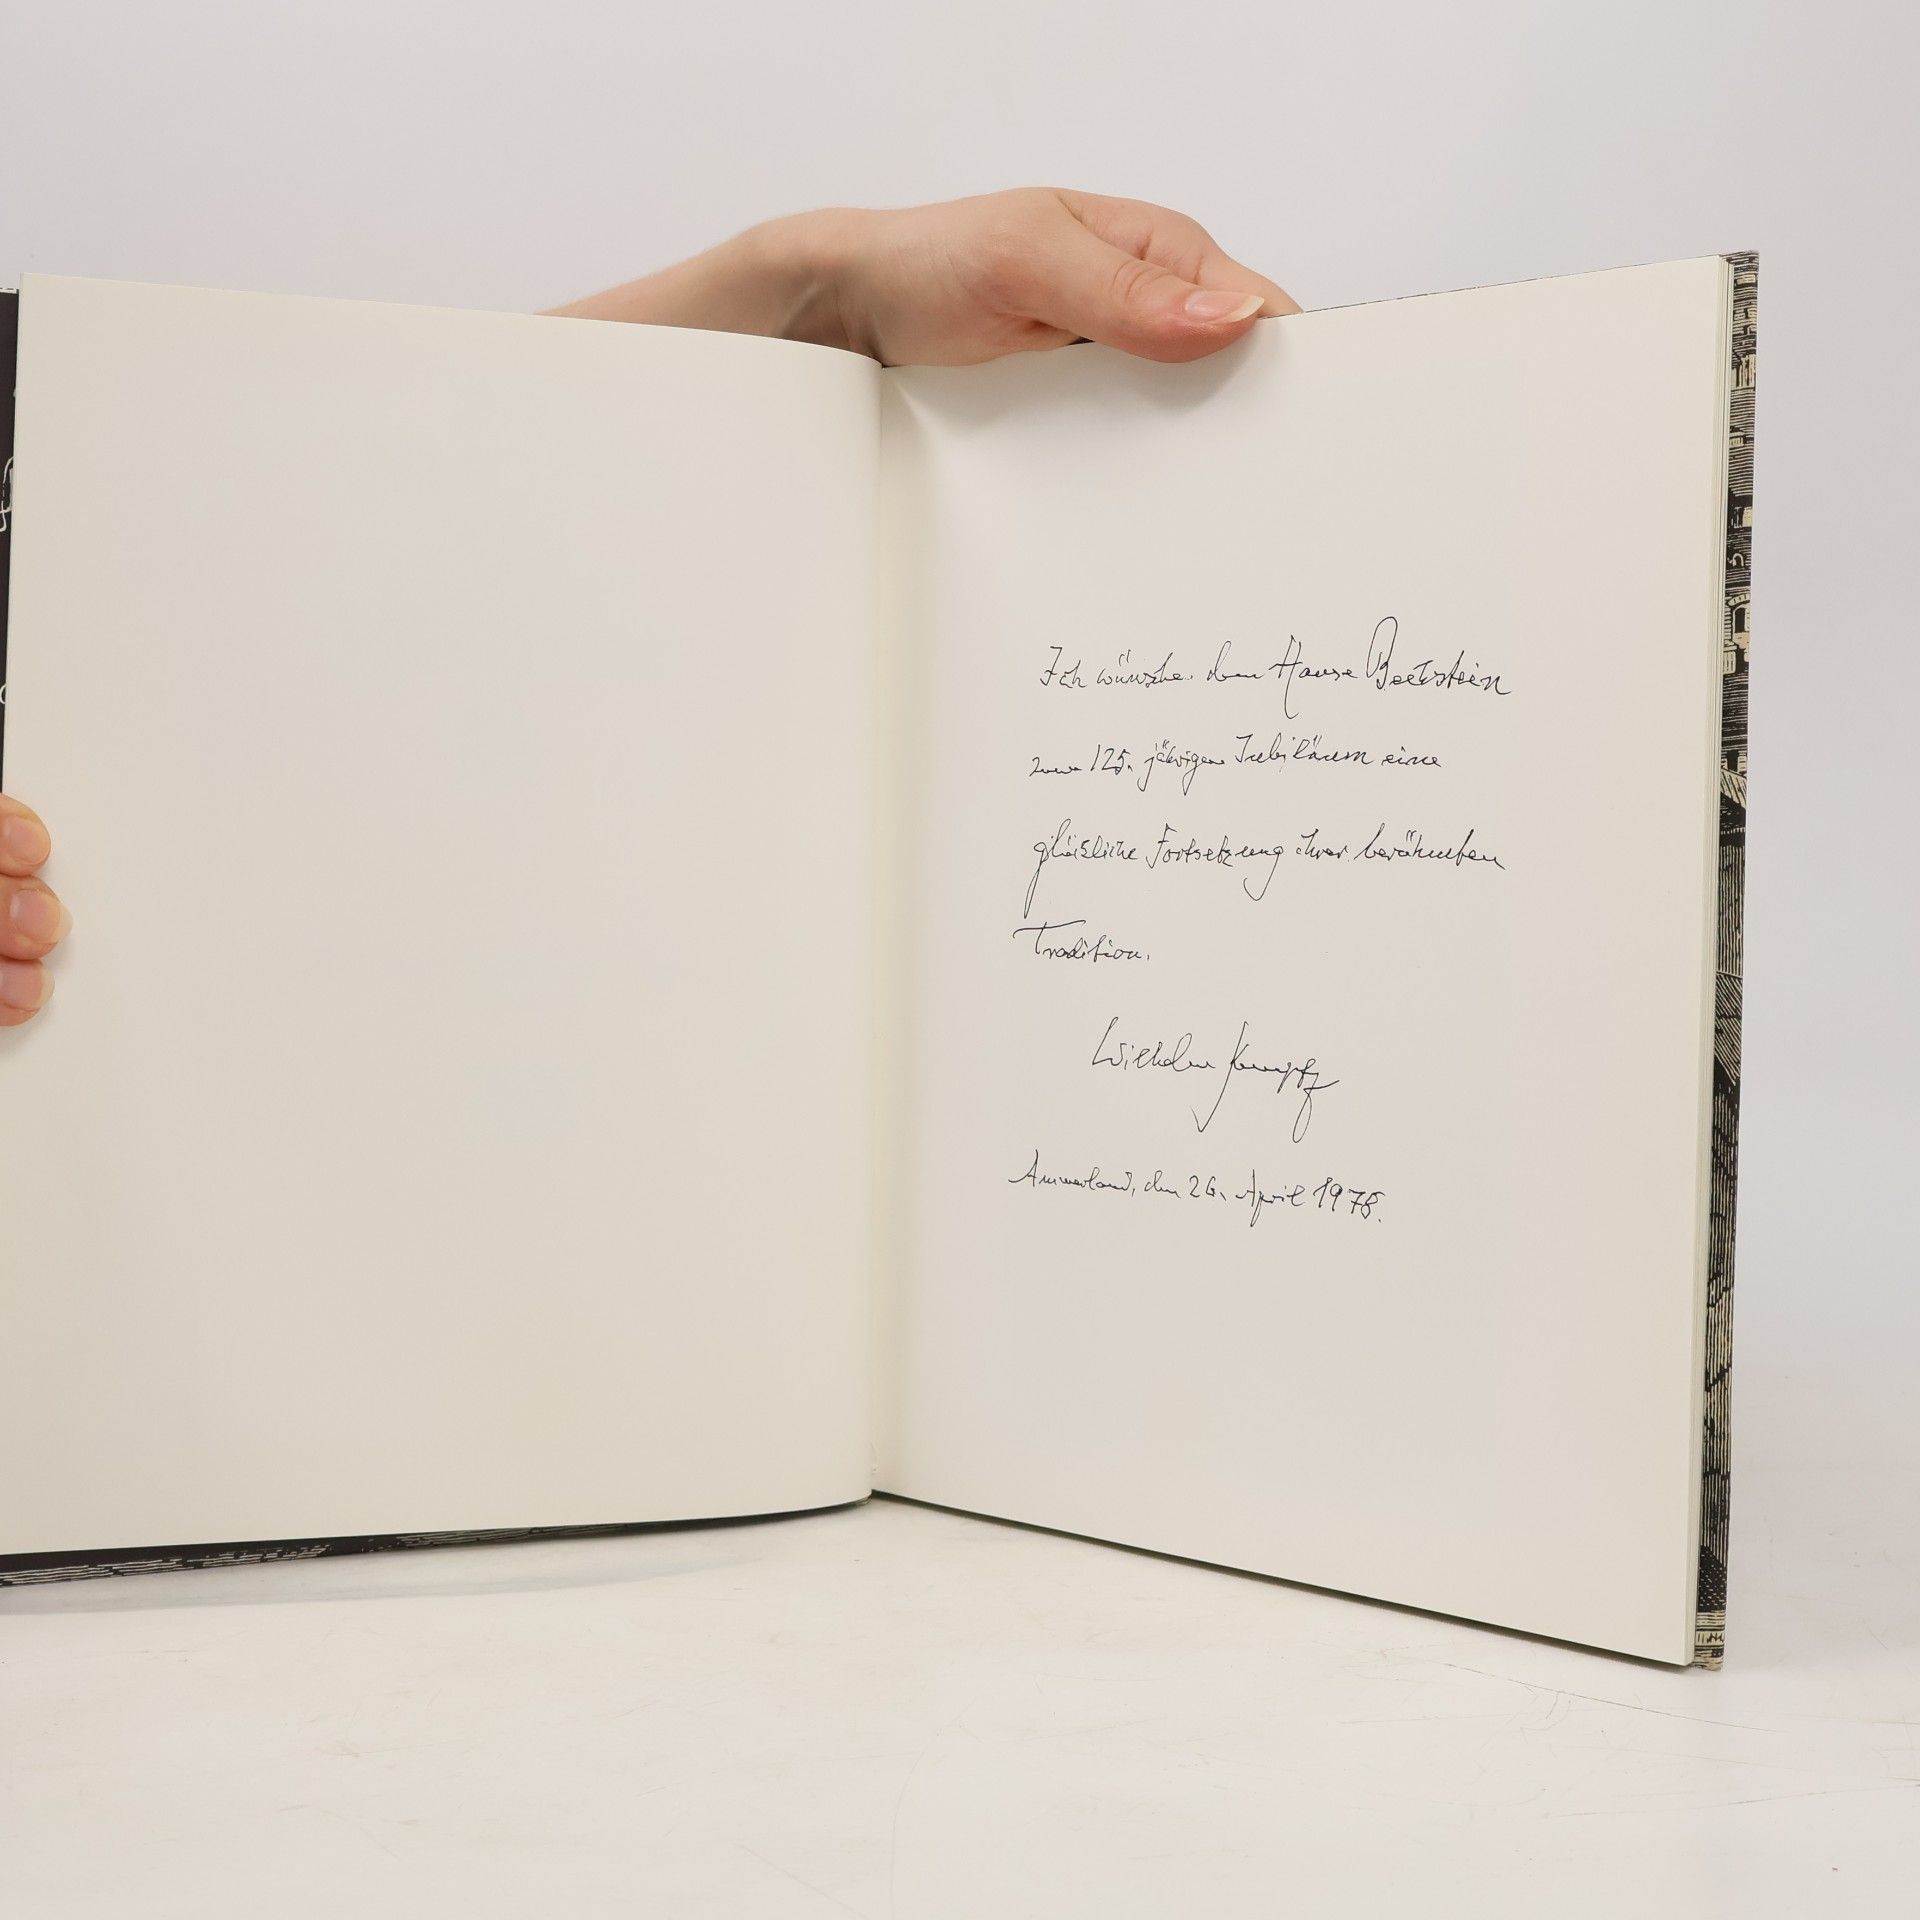 Ich wünsche dem Hause Bechstein
zum 125. jährigen Jubiläum eine
glückliche Fortsetzung ihrer berühmten
Tradition.
Wilhelm Kempff
Ammerland, den 26. April 1978.